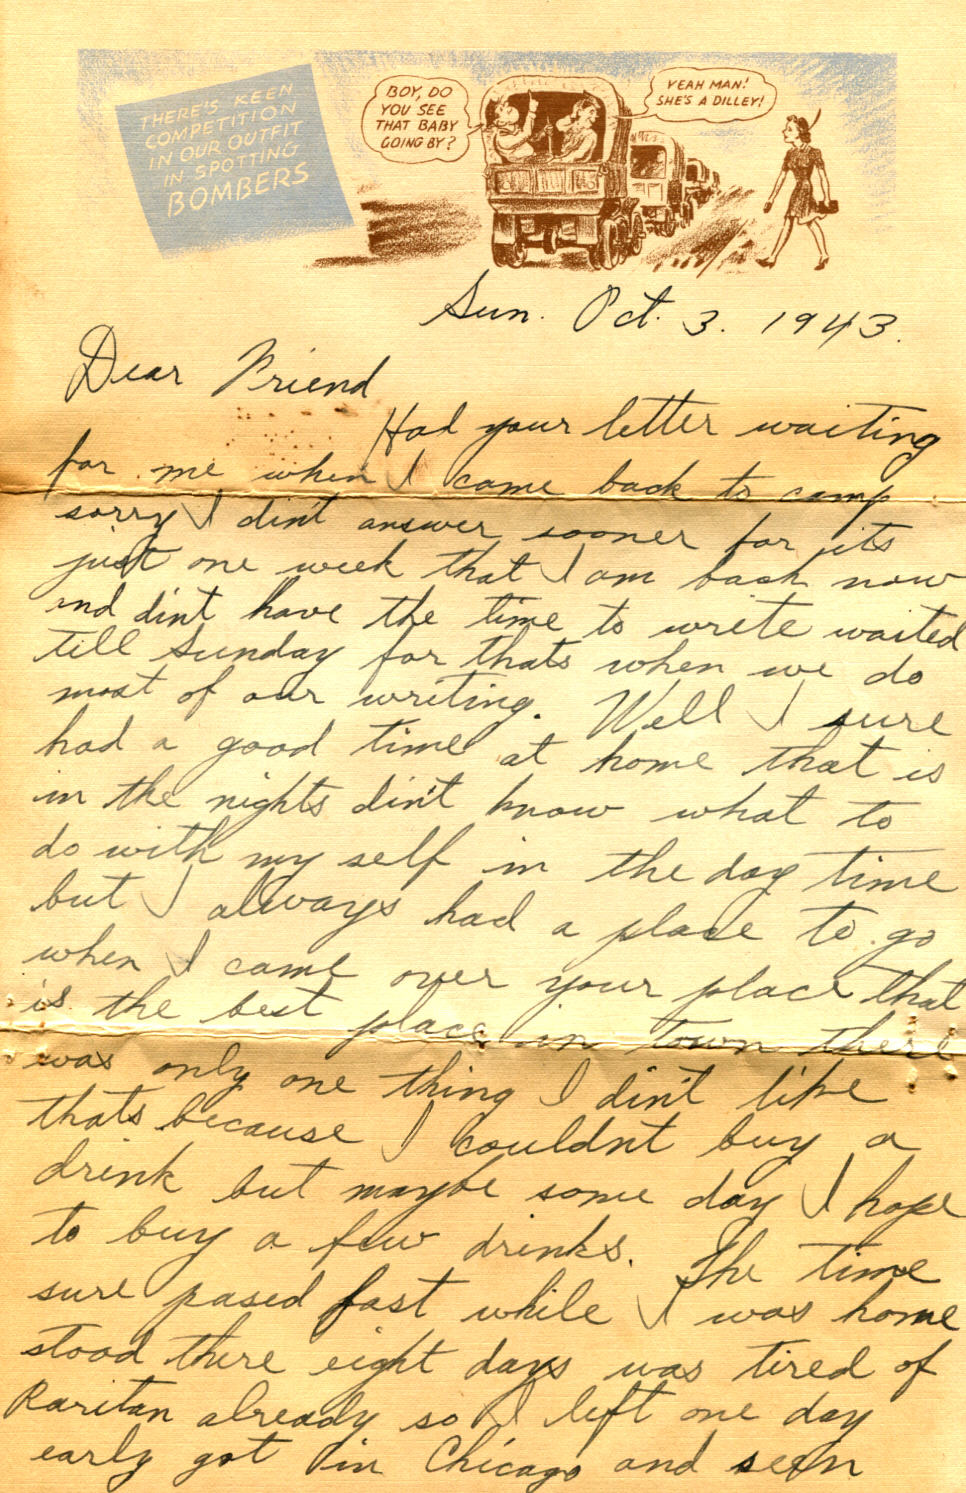 THERE'S KEEN
COMPETITION
IN OUR OUTFIT
IN SPOTTING
BOMBERS
BOY, DO
YOU SEE
THAT BABY
GOING BY?
YEAH MAN!
SHE'S A DILLEY!
Sun. Oct. 3. 1943.
Dear Friend
Had your letter waiting
for me when I came back to camp
sorry I dint answer sooner for its
just one week that I am back now
and dint have the time to write waited
till Sunday for thats when we do
most of our writing. Well I sure
had a good time at home that is
in the nights dint know what to
do with my self in the day time
but I always had a place to go
when I came over your place that
is the best place in town there
was only one thing I dint like
thats because I couldnt buy a
drink but maybe some day I hope
to buy a few drinks. The time
sure pased fast while I was home
stood there eight days was tired of
Raritan already so I left one day
early got in Chicago and seen